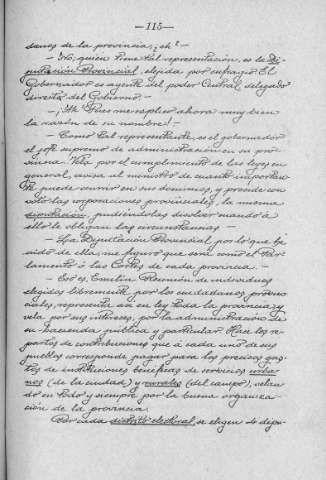 —115—
danos de la provincia, eh?
— No, quien tiene tal representación, es la Di-
putación Provincial, elejida por sufragio. El
Gobernador es agente del poder Central, delegado
directo del Gobierno —
— ¡Ah! Pues me explico ahora muy bien
la razón de su nombre! —
— Como tal representante, es el gobernador
el jefe supremo de administración en su pro-
vincia. Vela por el cumplimiento de las leyes en
general, avisa al ministro de cuanto importan-
te puede ocurrir en sus dominios, y preside con
voto las corporaciones provinciales, la misma
diputación, pudiéndolas disolver cuando á
ello le obligan las circunstancias —
— La Diputación Provincial por lo que he
oido de ella, me figuro que será como el Par-
lamento ó las Cortes de cada provincia. —
— Eso es, Emilia. Reunión de individuos
elegidos libremente por los ciudadanos provin-
ciales, representa así en ley toda la provincia, y
vela por sus intereses, por la administración de
su hacienda pública y particular. Hace los re-
partos de contribuciones que á cada uno de sus
pueblos corresponde pagar para los precisos gas-
tos de instituciones benéficas de servicios urba-
nos (de la ciudad) y rurales (del campo), velan-
do en todo y siempre por la buena organiza-
ción de la provincia.
Por cada distrito electoral se eligen 4 dipu-